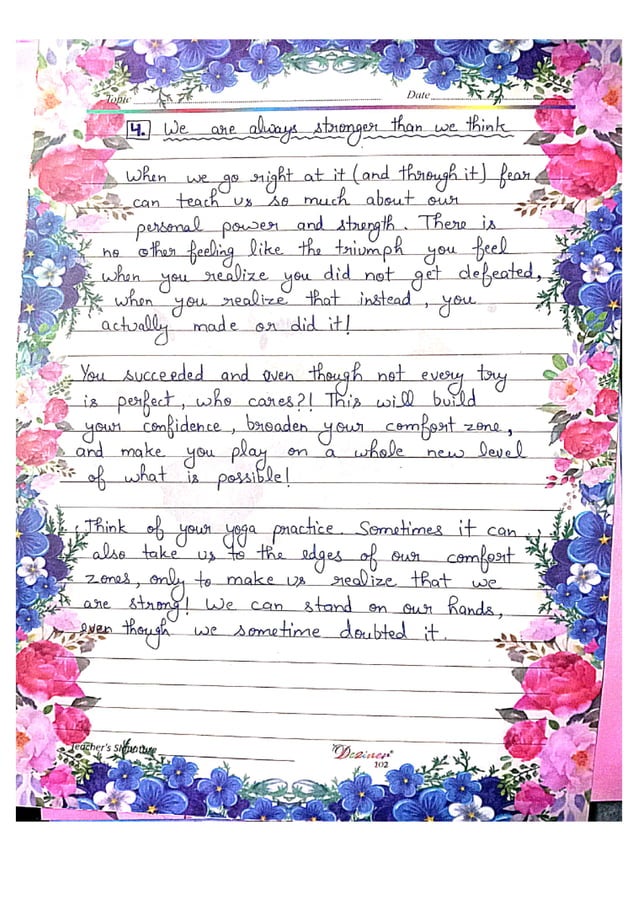 Topic
Date
4. We are always stronger than we think
When we go right at it (and through it) fear
can teach us so much about our
personal power and strength. There is
no other feeling like the triumph you feel
when you realize you did not get defeated,
when you realize that instead, you
actually made or did it!
You succeeded and even though not every try
is perfect, who cares?! This will build
your confidence, broaden your comfort zone,
and make you play on a whole new level
of what is possible!
Think of your yoga practice. Sometimes it can
also take us to the edges of our comfort
zones, only to make us realize that we
are strong! We can stand on our hands,
even though we sometime doubted it.
Teacher's Signature
Deziner
102